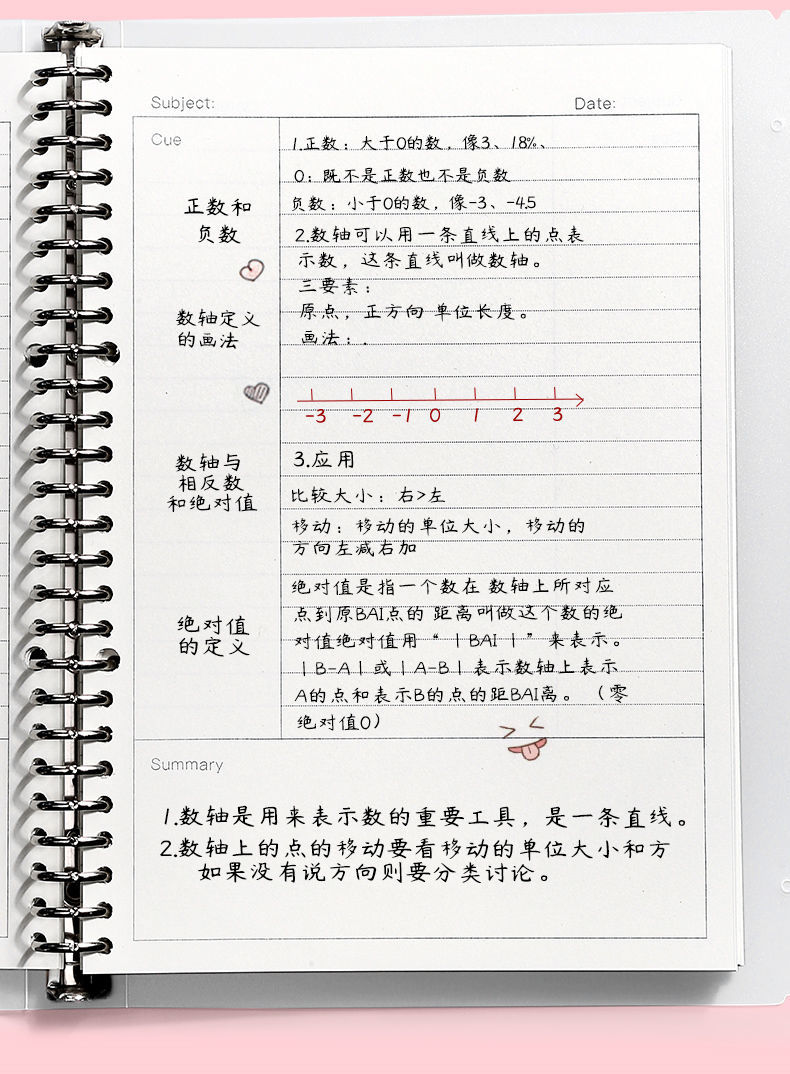 Subject:
Date:
Cue
1.正数：大于0的数，像3、18%、
0：既不是正数也不是负数
正数和
负数
负数：小于0的数，像-3、-4.5
2.数轴可以用一条直线上的点表
示数，这条直线叫做数轴。
三要素：
数轴定义
的画法
原点，正方向 单位长度。
画法：.
-3 -2 -1 0 1 2 3
数轴与
相反数
和绝对值
3.应用
比较大小：右>左
移动：移动的单位大小，移动的
方向左减右加
绝对值
的定义
绝对值是指一个数在 数轴上所对应
点到原BAI点的 距离叫做这个数的绝
对值绝对值用“｜BAI｜”来表示。
｜B-A｜或｜A-B｜表示数轴上表示
A的点和表示B的点的距BAI离。（零
绝对值0）
Summary
1.数轴是用来表示数的重要工具，是一条直线。
2.数轴上的点的移动要看移动的单位大小和方
如果没有说方向则要分类讨论。